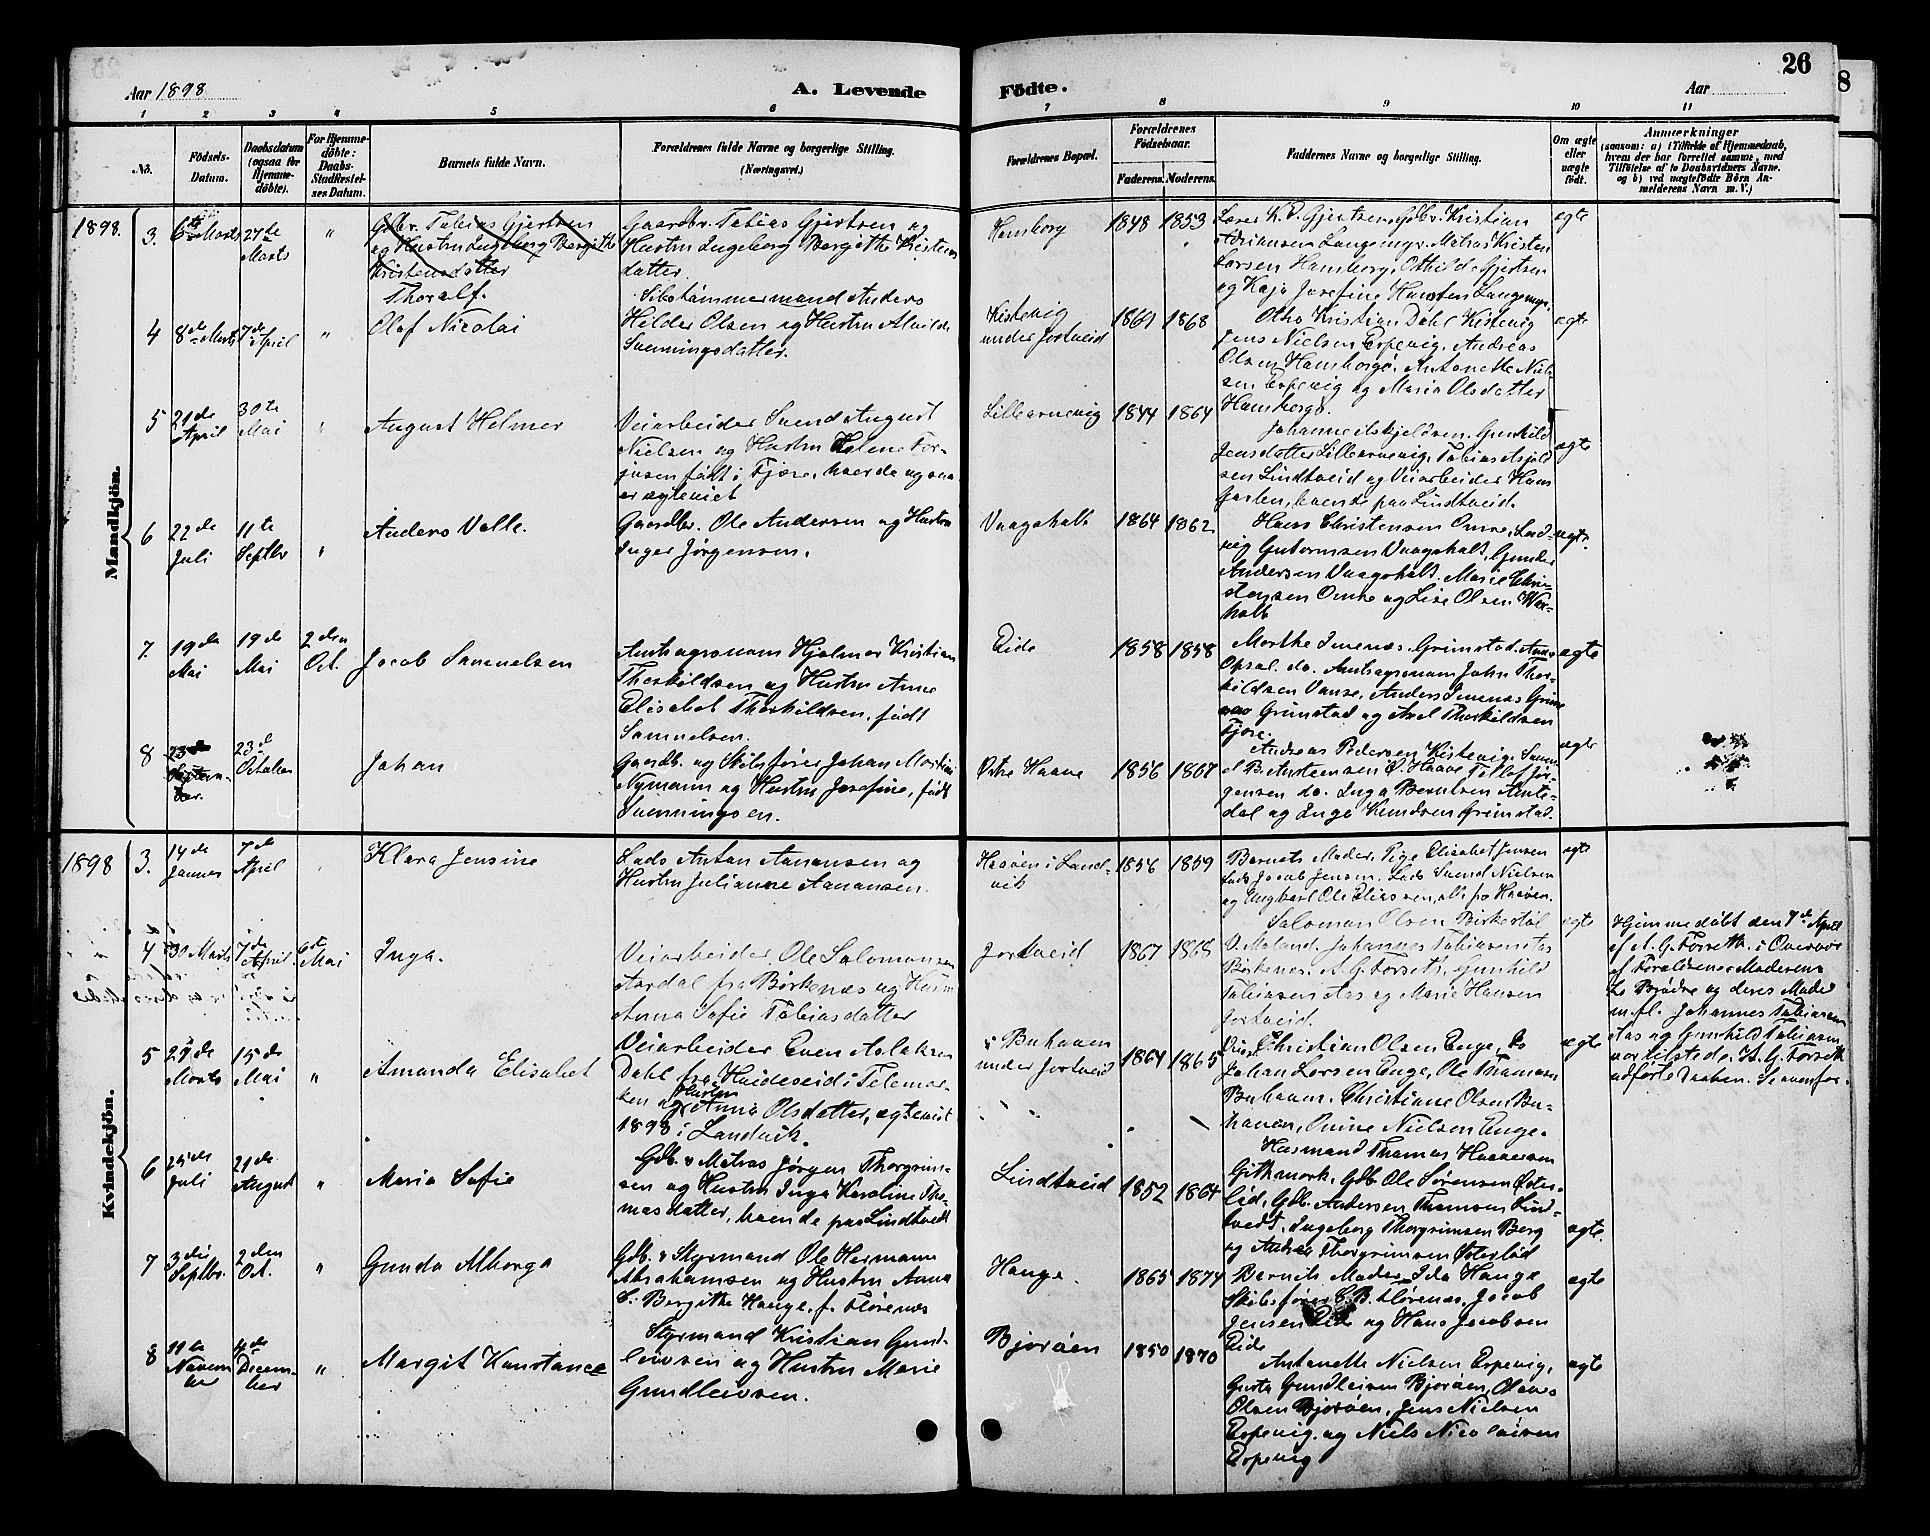 Aar 1898. A. Levende
Födte. Aar 26
1 2 3 4 5 6 7 8 9 10 11
No.
Födsels-
Datum.
Daabsdatum
(ogsaa för
Hjemme-
döbte).
For Hjemme-
döbte:
Daabs-
Stadfæstel-
ses Datum.
Barnets fulde Navn.
Forældrenes fulde Navne og borgerlige Stilling.
(Næringsvei.)
Forældrenes Bopæl.
Forældrenes
Födselsaar.
Faderens. Moderens.
Faddernes Navne og borgerlige Stilling.
Om ægte
eller
uægte
födt.
Anmærkninger
(saasom: a) i Tilfælde af Hjemmedaab,
hvem der har forrettet samme, med
Tilföielse af to Daabsvidners Navne.
og b) ved uægtefödte Börn An-
melderens Navn m. V.)
Mandkjön.
1898. 3. 6te Marts 27te
Marts
"
Gdbr. Tobias Gjertsen
og Hustru Ingeborg Bergitte
Kristensdatter
Thoralf.
Gaardbr. Tobias Gjertsen og
Hustru Ingeborg Bergitte Kristens
datter.
Hamborg 1848 1853
Lærer K. O. Gjertsen, Gdbr. Kristian
Adriansen Langemyr, Matros Kristen
Larsen Hamborg, Othilde Gjertsen
og Kaja Josefine Hansten Langemyr.
ægte
4 8de Marts 7de April "
Olaf Nicolai
Skibstømmermand Anders
Helder Olsen og Hustru Alvilde
Svenningsdatter.
Kistevig
under Jortveid
1869 1868
Otto Kristian Dahl Kistevig
Jens Nielsen Espevig, Andreas
Olsen Hamborgø. Antonette Niel-
sen Espevig og Maria Olsdatter
Hamborgø.
ægte
5 21de
April
30te
Mai
"
August Helmer
Veiarbeider Svend August
Nielsen og Hustru Helene Tor-
jusen født i Fjære, hvor de ogsaa
er ægteviet
Lillearnevig 1844 1864
Johanne Askjeldsen. Gunhild
Jensdatter Lillearnevig, Tobias Asjeld
sen Lindtveid og Veiarbeider Hans
Jorten, boende paa Lindtveid.
ægte
6 22de
Juli
11te
Septbr
"
Anders Valle.
Gaardbr. Ole Andersen og Hustru
Inger Jørgensen.
Vaagsholt 1864 1862
Hans Christensen Omre, Lud-
vig Gutormsen Vaagsholt, Gunder
Andersen Vaagsholt. Marie Chri-
stensen Omre og Lise Olsen Vaa-
holt
ægte.
7. 19de
Mai
19de
Mai
2den
Oct.
Jacob Samuelsen
Amtsagronom Hjalmar Kristian
Thorkildsen og Hustru Anne
Elisabet Thorkildsen, født
Samuelsen.
Eide 1858 1858
Morthe Imenæs. Grimstad. Anna
Opsal. do. Amtsagronom John Thor-
kildsen Vanse, Anders Imenæs Grim
Grimstad og Axel Thorkildsen
Fjære.
ægte
8 23de
Septem-
ber.
23de
October
Johan
Gaardb. og Skibsfører Johan Martin
Nymann og Hustru Josefine, født
Svenningsen.
Østre Haave 1856 1867
Andreas Pedersen Kistevig, Samu-
el B. Austeensen Ø. Haave Tellef Jør-
gensen do. Inga Berntsen Amte-
dal og Inga Knudsen Grimstad.
ægte
Kvindekjön.
1898 3. 14de
Januar
7de
April
Klara Jensine
Lods Anton Aanonsen og
Hustru Julianne Aanonsen.
Hasøen i Land-
vik
1856 1859
Barnets Moder, Pige Elisabet Jensen
Lods Jacob Jensen. Lods Svend Nielsen
og Ungkarl Ole Eliassen, alle fra Hasøen.
ægte
4 30 Marts 7de
April
6te
Mai
Inga.
Veiarbeider Ole Salomonsen
Aardal fra Birkenæs og Hustru
Anna Sofie Tobiasdatter
Jortveid 1867 1868
Salomon Olsen Birkestøl
V. Moland. Johannes Tobiassen Aas
Birkenes. A. G. Torseth. Gunhild
Tobiassen Aas og Marie Hansen
Jortveid.
ægte
Hjemmedøbt den 7de April
af A. G. Torseth i Overvær
af Forældrene, Moderens
to Brødre og deres Moder
m. fl. Johannes Tobiassen
Aas og Gunhild Tobiassen
var tilstede. A. G. Torseth
udførte Daaben. Sævenfor.
5 29de
Marts
15de
Mai
"
Amanda Elisabet
Veiarbeider Even Aslaksen
Dahl fra Hvideseid i Telemar-
ken og Hustru Anna Olsdatter, ægteviet
1898 i Landvik.
i Buhaven
under Jortveid
1864 1865
Christian Olsen Enge,
Johan Larsen Enge, Ole Thomsen
Buhaven. Christiane Olsen Bu-
haven, Onine Nielsen Enge.
ægte
6 25de
Juli
21de
August
"
Maria Sofie
Gdb. & Matros Jørgen Thorgrim-
sen og Hustru Inga Karoline Tho-
masdatter, boende paa Lindtveidt
Lindtveid 1852 1864
Husmand Thomas Haavesen
Githmark, Gdb. Ole Sørensen Øster-
lid, Gdb. Andersen Thomsen Lind-
tvedt, Ingeborg Thorgrimsen Berg
og Andrea Thorgrimsen Østerlid
ægte.
7 3die
Septbr.
2den
Oct.
"
Gunda Alborga
Gdb. & Styrmand Ole Hermann
Abrahamsen og Hustru Anna
S. Bergithe Hauge, f. Flørenæs
Hauge. 1865 1874
Barnets Moder, Ida Hauge
Skibsfører C. B. Flørenæs, Jacob
Jensen Eide og Hans Jacobsen
Eide
ægte
8 11te
Novem
ber
4de
Decem-
ber
"
Margit Konstance
Styrmand Kristian Gund-
leivsen og Hustru Marie
Gundleivsen.
Bjorøen 1850 1870
Antonette Nielsen Espevig,
Gusta Gundleivsen Bjorøen, Olaves
Olsen Bjorøen, Jens Nielsen
Espevig. og Niels Nicolaisen
Espevig
ægte